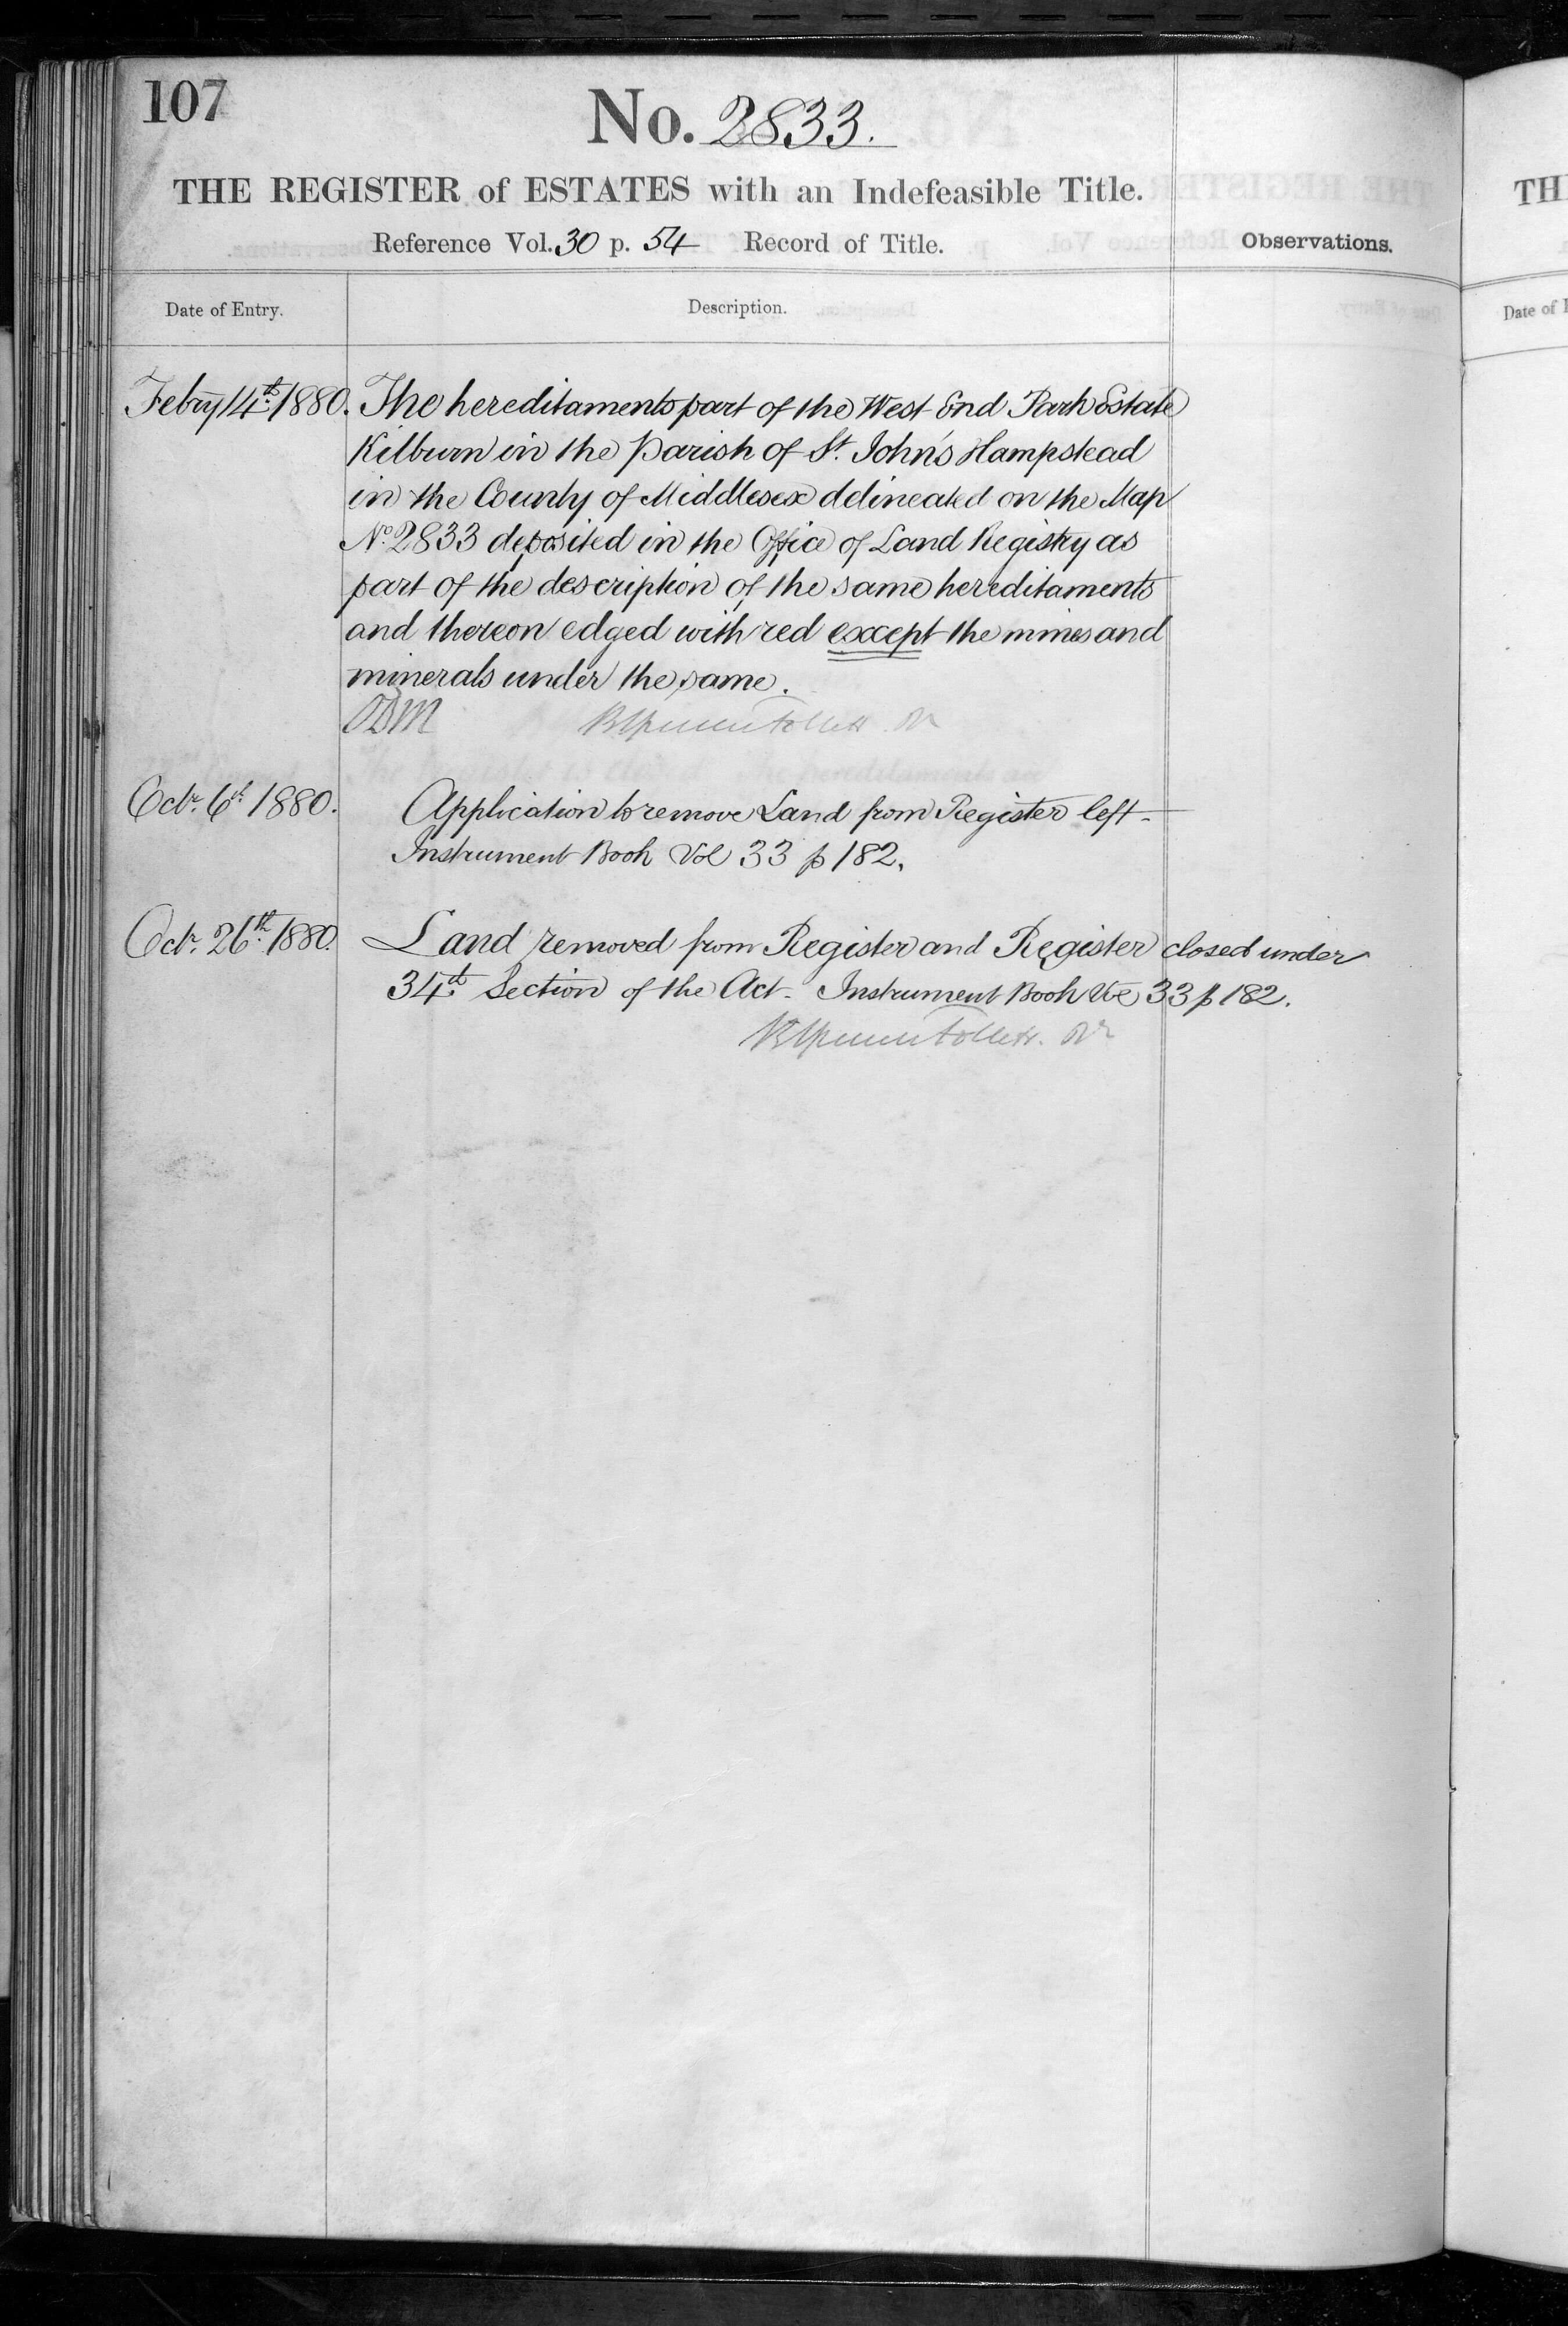 107
No. 2833.
THE REGISTER of ESTATES with an Indefeasible Title.
Reference Vol. 30 p. 54 Record of Title.
Observations.
Date of Entry.
Description.
Febry 14th 1880. The hereditaments part of the West End Park Estate
Kilburn in the Parish of St. John's Hampstead
in the County of Middlesex delineated on the Map
No. 2833 deposited in the Office of Land Registry as
part of the description of the same hereditaments
and thereon edged with red except the mines and
minerals under the same.
Octr. 6th 1880. Application to remove Land from Register left -
Instrument Book Vol 33 p 182.
Octr. 26th 1880. Land removed from Register and Register closed under
34th Section of the Act - Instrument Book Vol 33 p 182.
TH
Date of